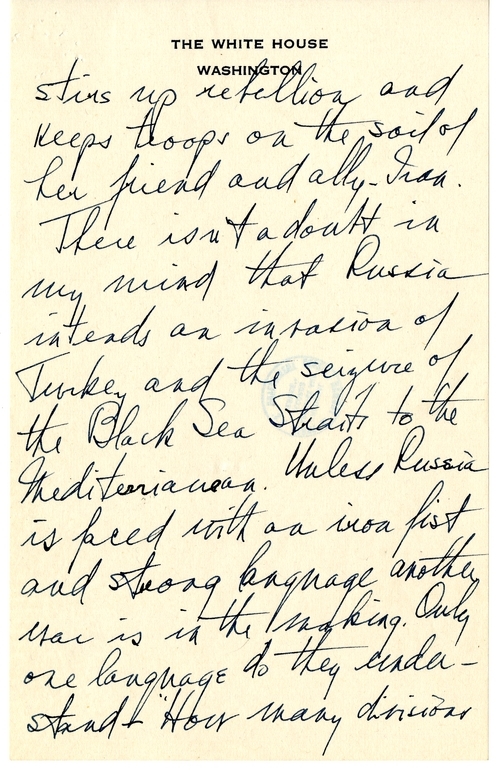 THE WHITE HOUSE
WASHINGTON
stirs up rebellion and
keeps troops on the soil of
her friend and ally - Iran.
There isn't a doubt in
my mind that Russia
intends an invasion of
Turkey and the seizure of
the Black Sea Straits to the
Mediterranean. Unless Russia
is faced with an iron fist
and strong language another
war is in the making. Only
one language do they under-
stand - "How many divisions